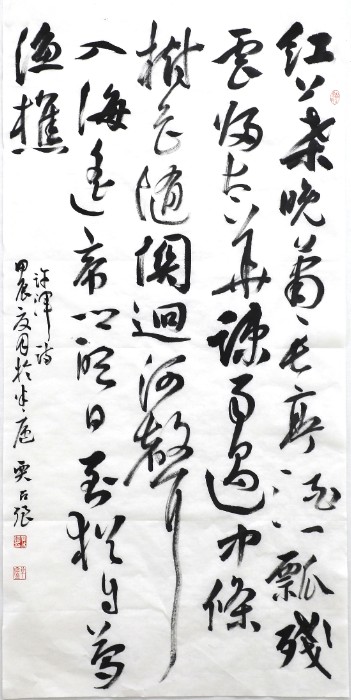 紅葉晚蕭〻長亭酒一瓢殘
雲歸太華疎雨過中條
樹色隨關迥河聲
入海遙帝鄉明日到猶自夢
漁樵
許渾詩
甲辰夏月於